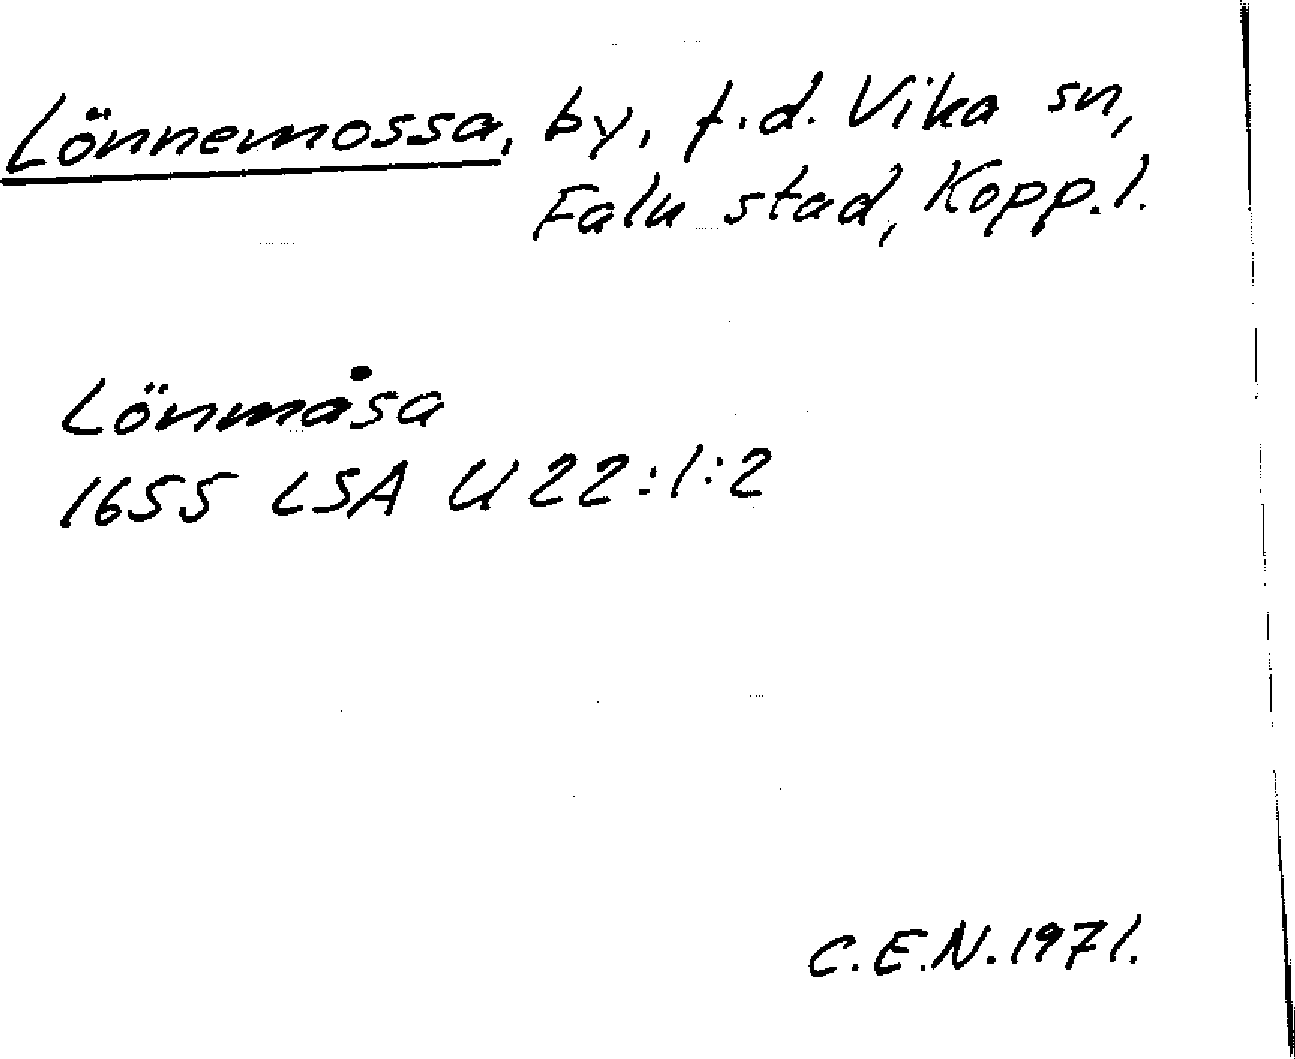 Lönnemossa, by, f.d. Vika sn,
Falu stad, Kopp.l.
Lönmåsa
1655 LSA U 22:1:2
C.E.N. 1971.